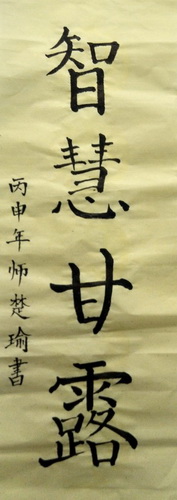 智慧甘露
丙申年师楚瑜書